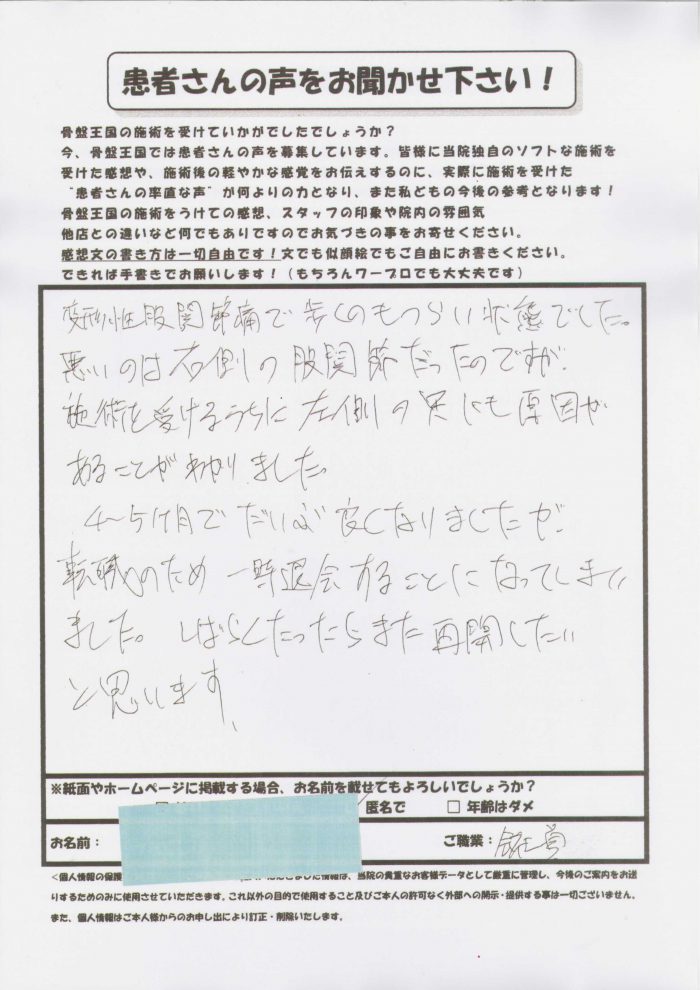 患者さんの声をお聞かせ下さい！
骨盤王国の施術を受けていかがでしたでしょうか？
今、骨盤王国では患者さんの声を募集しています。皆様に当院独自のソフトな施術を
受けた感想や、施術後の軽やかな感覚をお伝えするのに、実際に施術を受けた
"患者さんの率直な声"が何よりの力となり、また私どもの今後の参考となります！
骨盤王国の施術をうけての感想、スタッフの印象や院内の雰囲気
他店との違いなど何でもありですのでお気づきの事をお寄せください。
感想文の書き方は一切自由です！文でも似顔絵でもご自由にお書きください。
できれば手書きでお願いします！（もちろんワープロでも大丈夫です）
変形性股関節痛で歩くのもつらい状態でした。
悪いのは右側の股関節だったのですが、
施術を受けるうちに左側の足にも原因が
あることがわかりました。
4〜5ヶ月でだいぶ良くなりましたが、
転職のため一時退会することになってしまい
ました。しばらくたったらまた再開したい
と思います、
※紙面やホームページに掲載する場合、お名前を載せてもよろしいでしょうか？
匿名で □ 年齢はダメ
お名前： ご職業：
<個人情報の保護 情報は、当院の貴重なお客様データとして厳重に管理し、今後のご案内をお送
りするためのみに使用させていただきます。これ以外の目的で使用すること及びご本人の許可なく外部への開示・提供する事は一切ございません。
また、個人情報はご本人様からのお申し出により訂正・削除いたします。